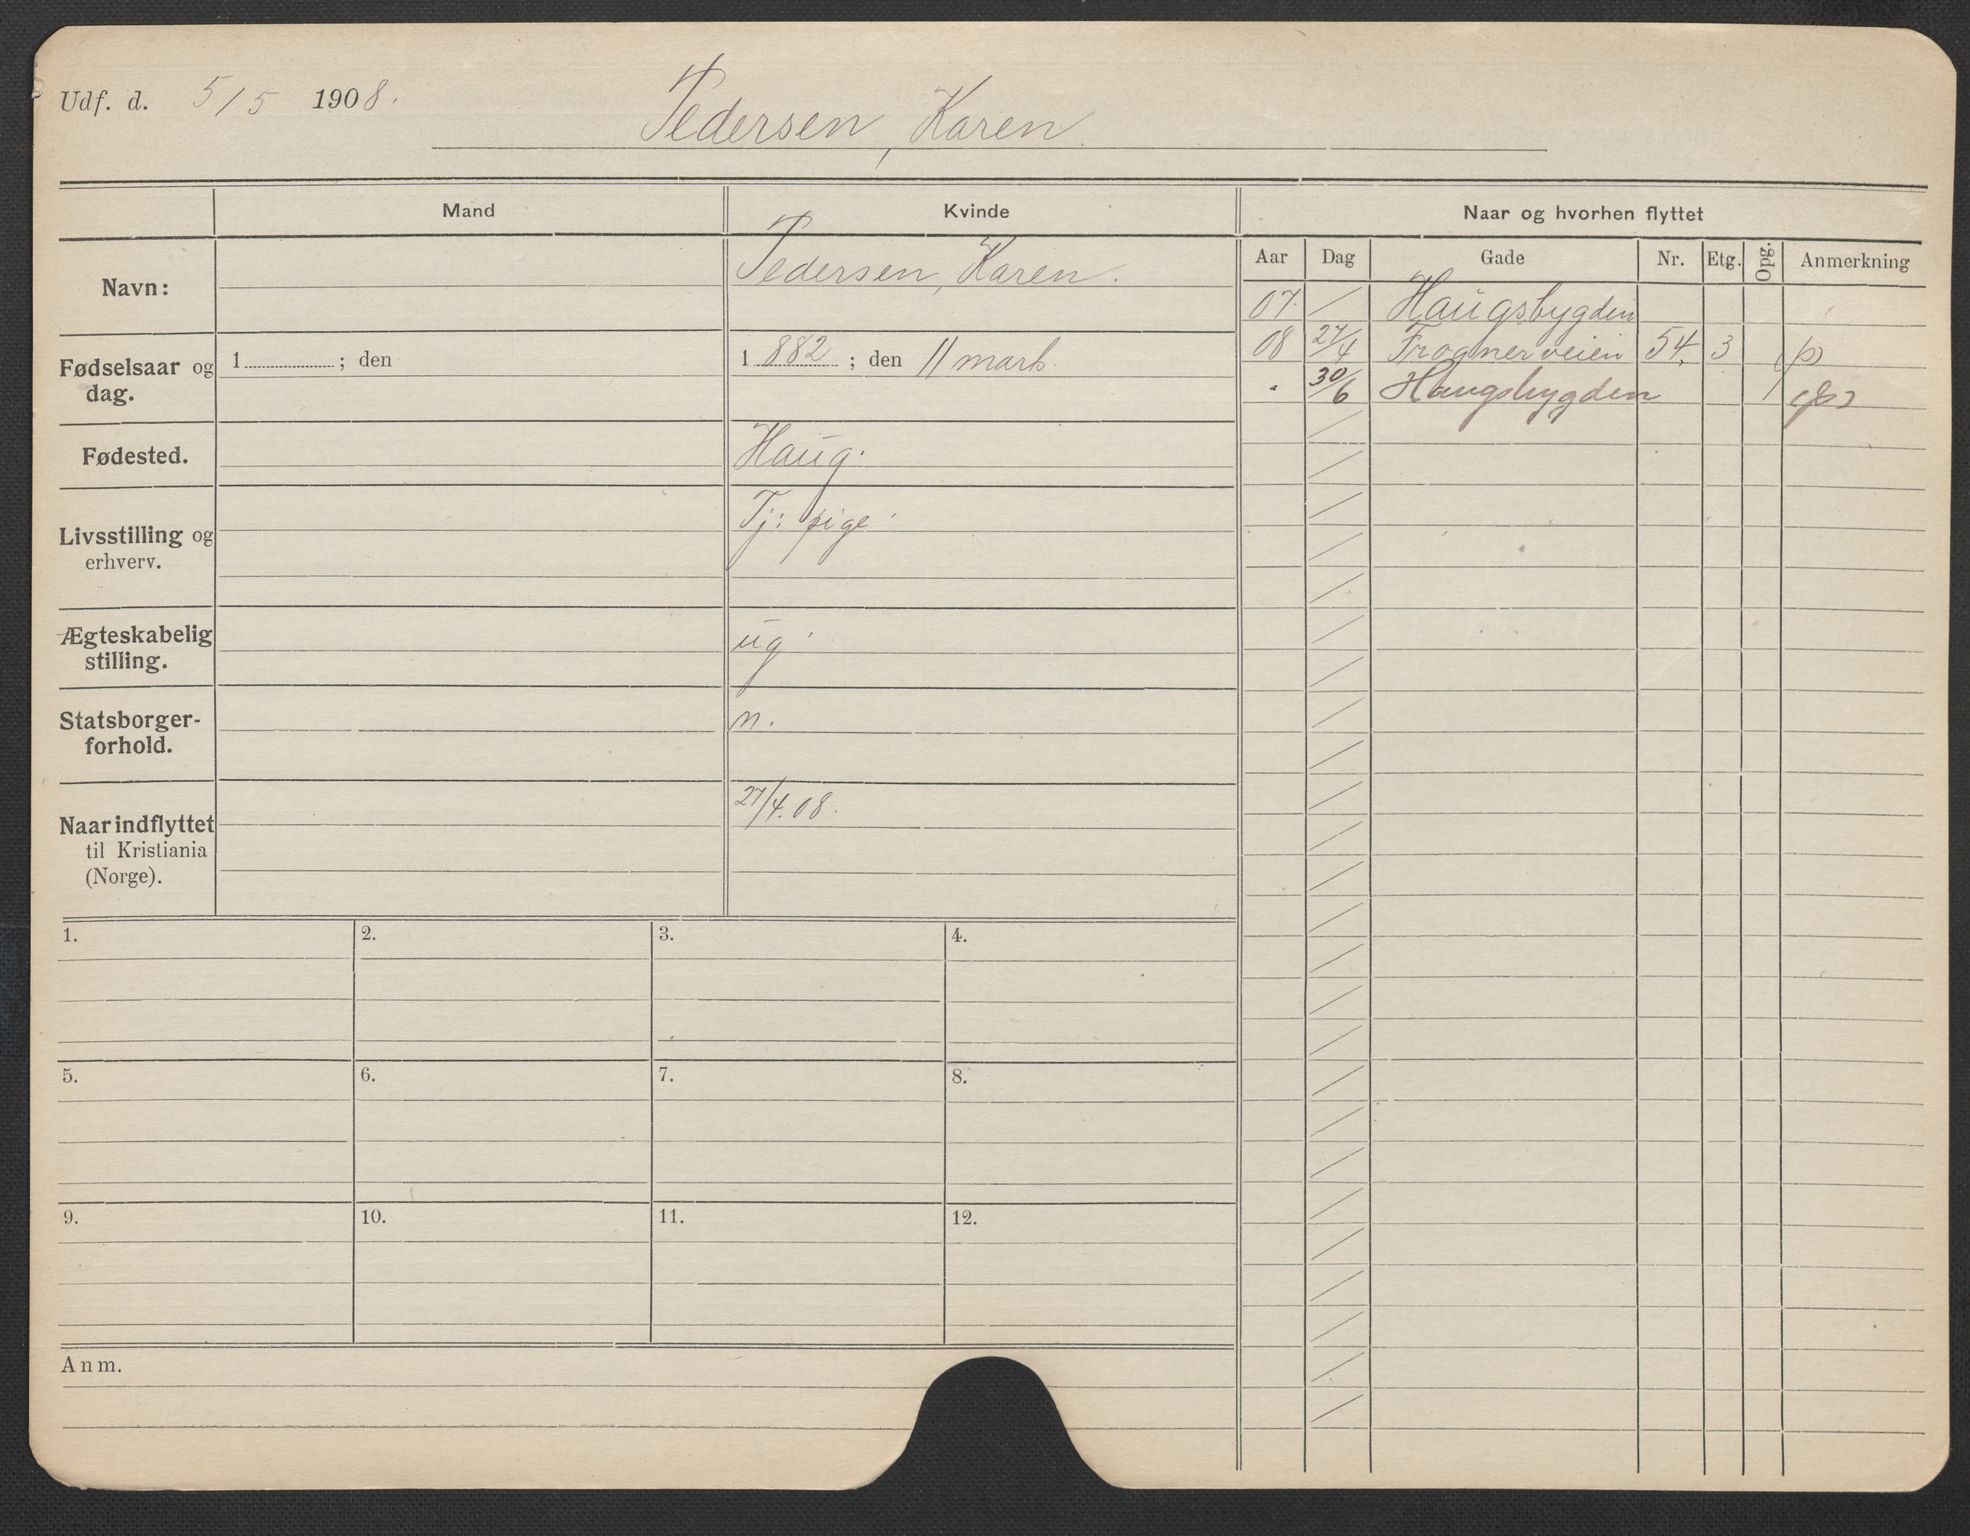 Udf. d. 5/5 1908.
Pedersen, Karen.
Mand
Kvinde
Naar og hvorhen flyttet
Aar Dag Gade Nr. Etg. Opg. Anmerkning
Navn:
Pedersen, Karen.
07. Haugsbygden
Fødselsaar og
dag.
1 ; den
1882 ; den 11 marts.
08 27/4 Frognerveien 54. 3 (p)
" 30/6 Haugsbygden (fp)
Fødested.
Haug.
Livsstilling og
erhverv.
Tj: pige
Ægteskabelig
stilling.
ug
Statsborger-
forhold.
n.
Naar indflyttet
til Kristiania
(Norge).
27/4.08.
1. 2. 3. 4.
5. 6. 7. 8.
9. 10. 11. 12.
Anm.